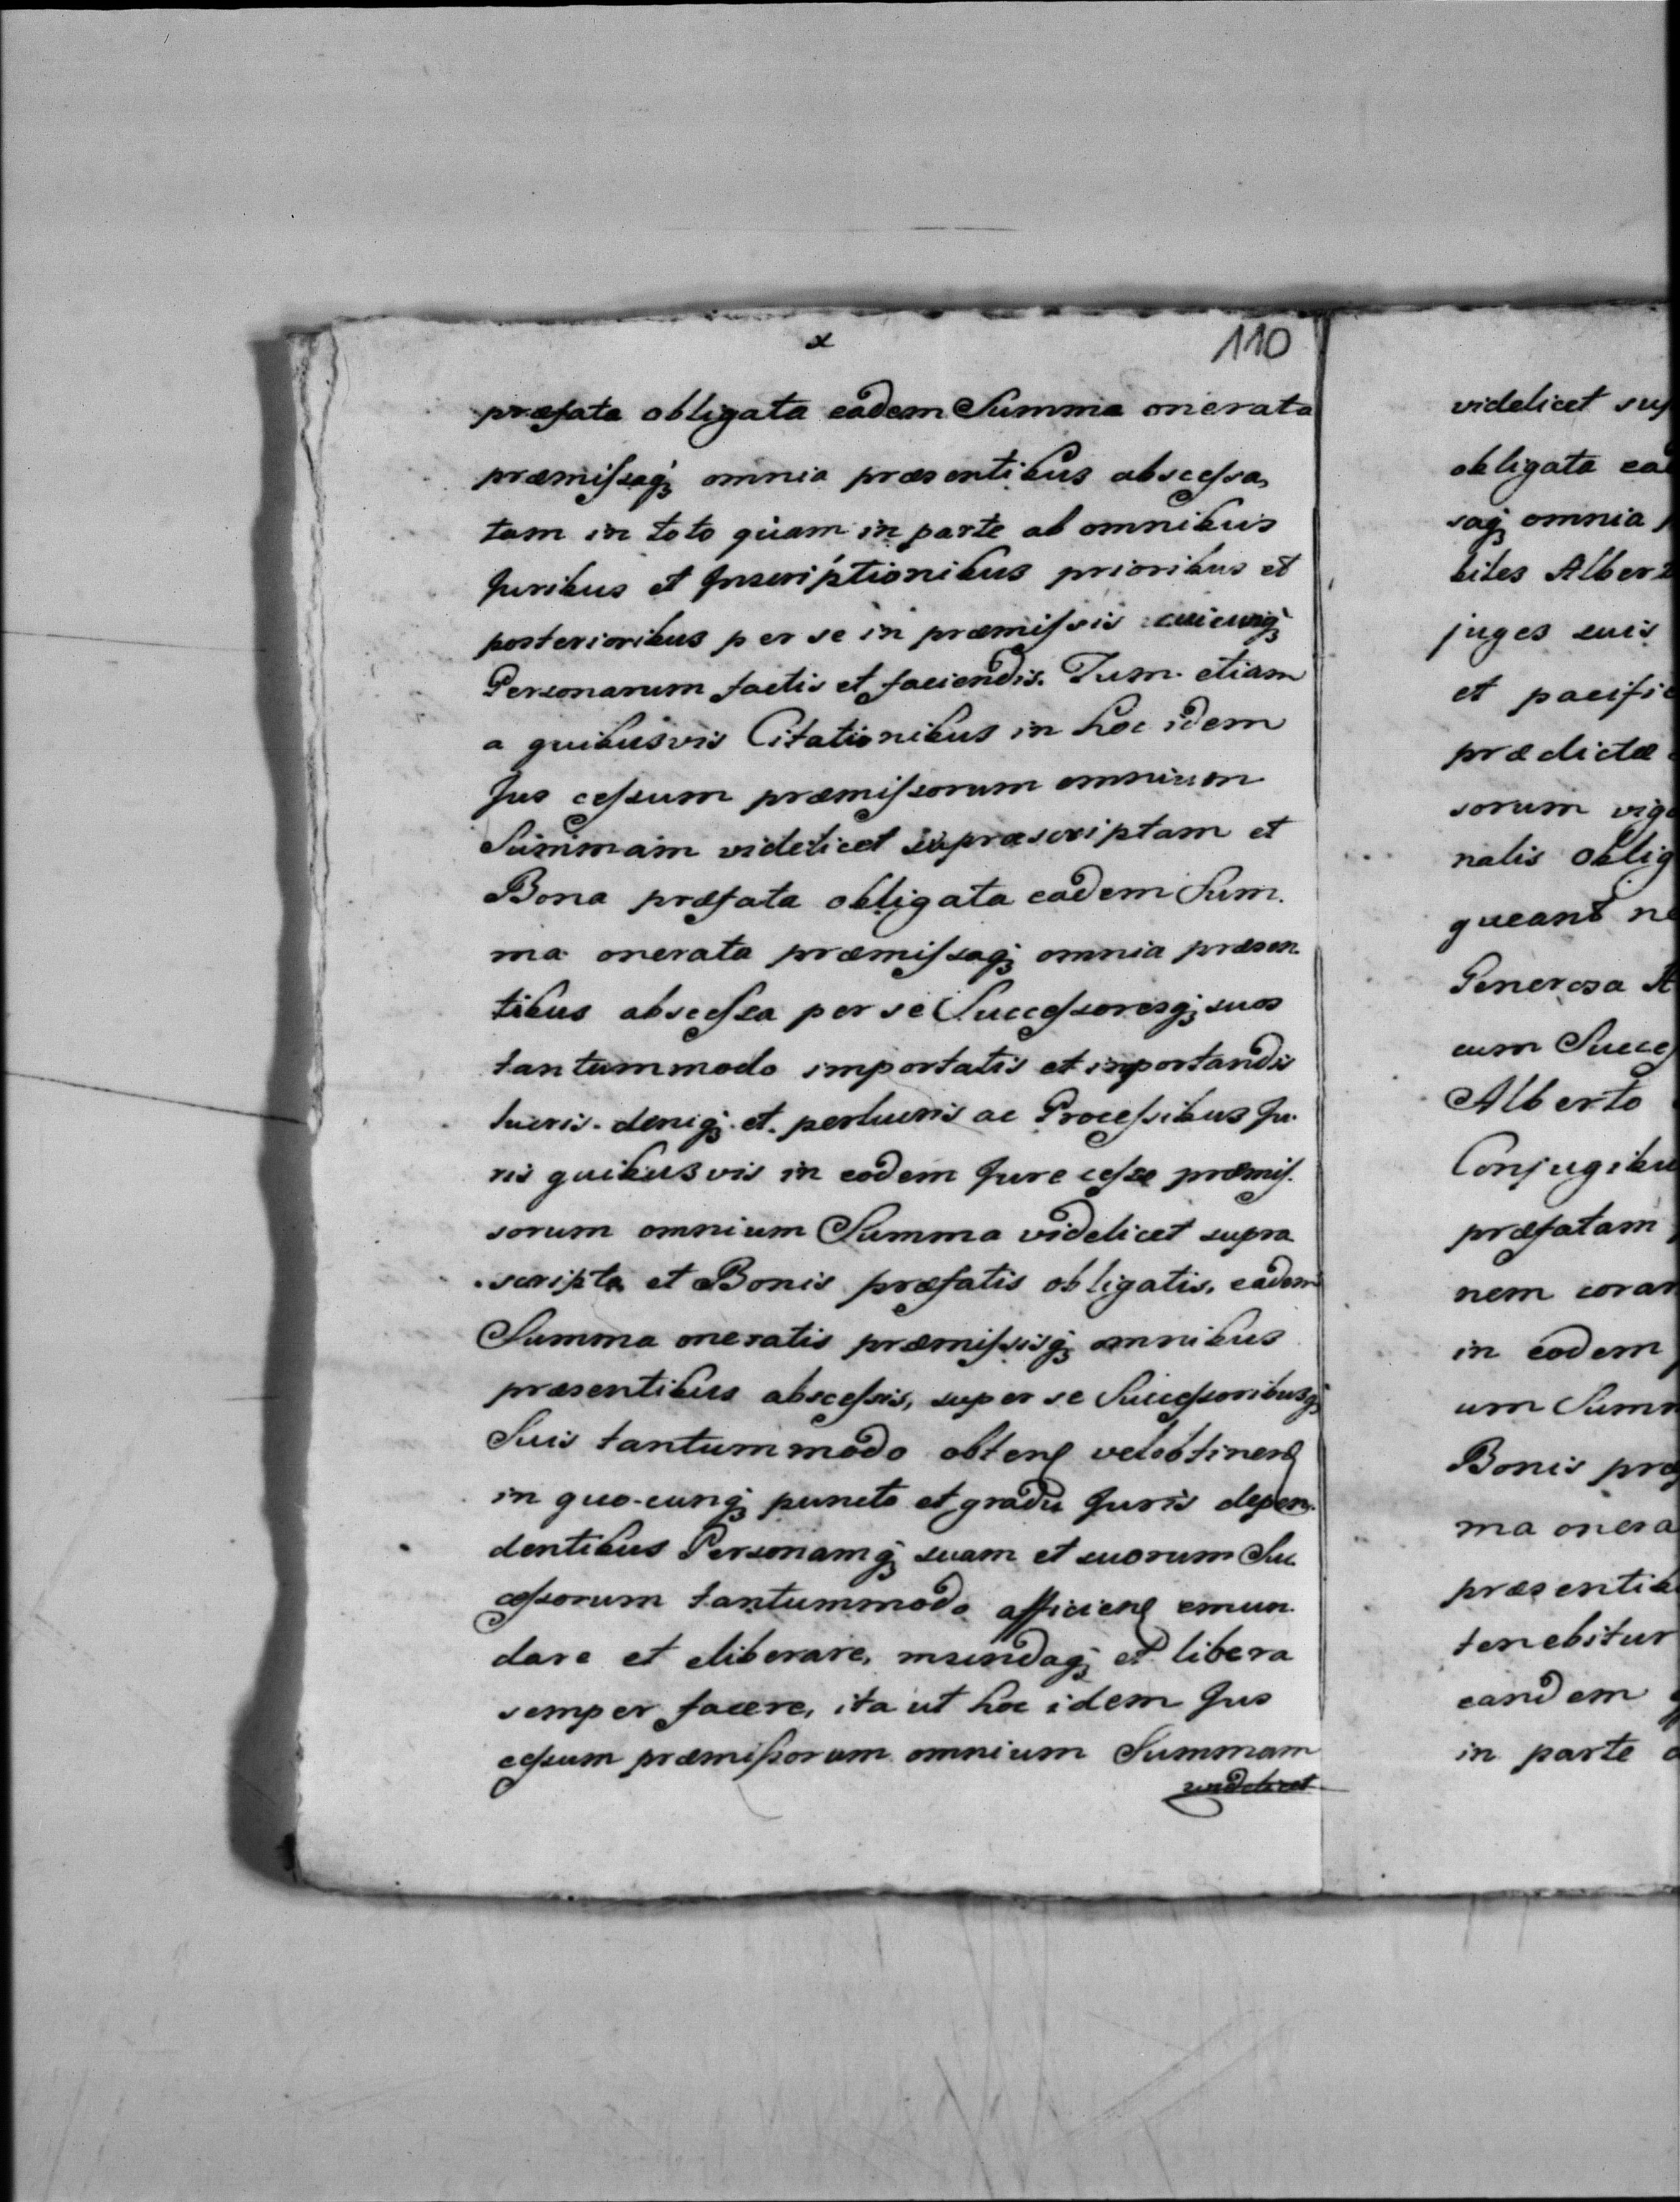 x
110
præfata obligata eadem Summa onerata
præmissaqꝫ omnia præsentibus abscessa,
tam in toto quam in parte ab omnibus
Juribus et Inscriptionibus prioribus et
posterioribus per se in præmissis cuicunqꝫ
Personarum factis et faciendis. Tum etiam
a quibusvis Citationibus in hoc idem
Jus cessum præmissorum omnium
Summam videlicet supræscriptam et
Bona præfata obligata eadem Sum-
ma onerata præmissaqꝫ omnia præsen-
tibus abscessa per se Successoresqꝫ suos
tantummodo importatis et importandis
lucris deniqꝫ et perlucris ac Processibus Ju-
ris quibusvis in eodem Jure cesso præmis-
sorum omnium Summa videlicet supra
scripta et Bonis præfatis obligatis, eadem
Summa oneratis præmissisqꝫ omnibus
præsentibus abscessis, super se Successoribusqꝫ
Suis tantummodo obten vel obtinen
in quo-cunqꝫ puncto et gradu Juris depen-
dentibus Personamqꝫ suam et suorum Suc
cessorum tantummodo afficien emun-
dare et eliberare, mundaqꝫ et libera
semper facere, ita ut hoc idem Jus
cessum præmissorum omnium Summam
videlicet
videlicet sup
obligata ead
saqꝫ omnia p
biles Albert
juges suis
et pacific
prædictæ
sorum vigo
nalis oblig
queant ne
Generosa A
cum Succes
Alberto
Conjugibu
præfatam
nem coram
in eodem
um Summ
Bonis præ
ma onera
præsentib
tenebitur
eandem
in parte